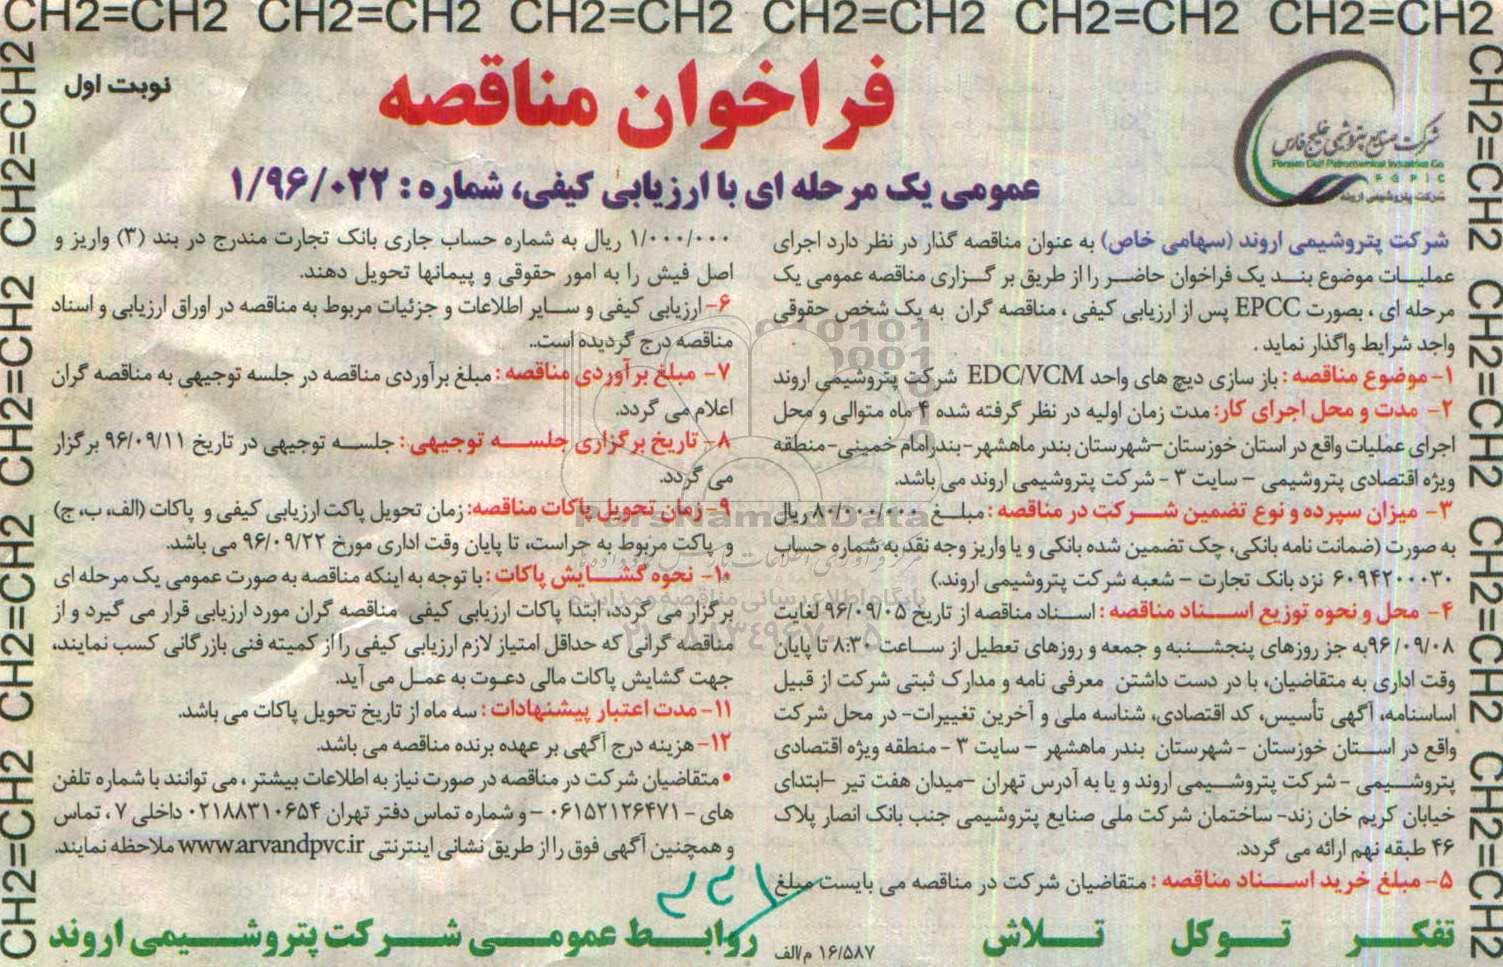 CH2=CH2 CH2=CH2 CH2=CH2 CH2=CH2 CH2=CH2 CH2=CH2
نوبت اول
فراخوان مناقصه
عمومی یک مرحله ای با ارزیابی کیفی، شماره : ۱/۹۶/۰۲۲
شرکت صنایع پتروشیمی خلیج فارس
Persian Gulf Petrochemical Industries Co
P G P I C
شرکت پتروشیمی اروند
شرکت پتروشیمی اروند (سهامی خاص) به عنوان مناقصه گذار در نظر دارد اجرای
عملیــات موضوع بنــد یک فراخوان حاضــر را از طریق بر گــزاری مناقصه عمومی یک
مرحله ای ، بصورت EPCC پس از ارزیابی کیفی ، مناقصه گران به یک شخص حقوقی
واجد شرایط واگذار نماید .
۱- موضوع مناقصه : باز سازی دیچ های واحد EDC/VCM شرکت پتروشیمی اروند
۲- مدت و محل اجرای کار: مدت زمان اولیه در نظر گرفته شده ۴ ماه متوالی و محل
اجرای عملیات واقع در استان خوزستان–شهرستان بندر ماهشهر- بندرامام خمینی-منطقه
ویژه اقتصادی پتروشیمی – سایت ۳ - شرکت پتروشیمی اروند می باشد.
۳- میزان سپرده و نوع تضمین شــرکت در مناقصه : مبلــغ ۸۰/۰۰۰/۰۰۰ ریال
به صورت (ضمانت نامه بانکی، چک تضمین شده بانکی و یا واریز وجه نقد به شماره حساب
۶۰۹۴۲۰۰۰۳۰ نزد بانک تجارت – شعبه شرکت پتروشیمی اروند.)
۴- محل و نحوه توزیع اســناد مناقصه : اســناد مناقصه از تاریخ ۹۶/۰۹/۰۵ لغایت
۹۶/۰۹/۰۸به جز روزهای پنجشــنبه و جمعه و روزهای تعطیل از ســاعت ۸:۳۰ تا پایان
وقت اداری به متقاضیان، با در دست داشتن معرفی نامه و مدارک ثبتی شرکت از قبیل
اساسنامه، آگهی تأسیس، کد اقتصادی، شناسه ملی و آخرین تغییرات- در محل شرکت
واقع در اســتان خوزستان - شهرستان بندر ماهشهر – سایت ۳ - منطقه ویژه اقتصادی
پتروشــیمی - شرکت پتروشــیمی اروند و یا به آدرس تهران –میدان هفت تیر –ابتدای
خیابان کریم خان زند- ساختمان شرکت ملی صنایع پتروشیمی جنب بانک انصار پلاک
۴۶ طبقه نهم ارائه می گردد.
۵- مبلغ خرید اســناد مناقصه : متقاضیان شرکت در مناقصه می بایست مبلغ
۱/۰۰۰/۰۰۰ ریال به شماره حساب جاری بانک تجارت مندرج در بند (۳) واریز و
اصل فیش را به امور حقوقی و پیمانها تحویل دهند.
۶- ارزیابی کیفی و ســایر اطلاعات و جزئیات مربوط به مناقصه در اوراق ارزیابی و اسناد
مناقصه درج گردیده است..
۷- مبلغ بر آوردی مناقصه : مبلغ برآوردی مناقصه در جلسه توجیهی به مناقصه گران
اعلام می گردد.
۸- تاریخ بر گزاری جلســه توجیهی : جلســه توجیهی در تاریخ ۹۶/۰۹/۱۱ بر گزار
می گردد.
۹- زمان تحویل پاکات مناقصه: زمان تحویل پاکت ارزیابی کیفی و پاکات (الف، ب، ج)
و پاکت مربوط به حراست، تا پایان وقت اداری مورخ ۹۶/۰۹/۲۲ می باشد.
۱۰- نحوه گشــایش پاکات : با توجه به اینکه مناقصه به صورت عمومی یک مرحله ای
برگزار می گردد، ابتدا پاکات ارزیابی کیفی مناقصه گران مورد ارزیابی قرار می گیرد و از
مناقصه گرانی که حداقل امتیاز لازم ارزیابی کیفی را از کمیته فنی بازرگانی کسب نمایند،
جهت گشایش پاکات مالی دعوت به عمــل می آید.
۱۱- مدت اعتبار پیشنهادات : سه ماه از تاریخ تحویل پاکات می باشد.
۱۲- هزینه درج آگهی بر عهده برنده مناقصه می باشد.
• متقاضیان شرکت در مناقصه در صورت نیاز به اطلاعات بیشتر ، می توانند با شماره تلفن
های - ۰۶۱۵۲۱۲۶۴۷۱ - و شماره تماس دفتر تهران ۰۲۱۸۸۳۱۰۶۵۴ داخلی ۷ ، تماس
و همچنین آگهی فوق را از طریق نشانی اینترنتی www.arvandpvc.ir ملاحظه نمایند.
تفکــر تــوکل تــلاش
۱۶/۵۸۷ م/الف
روابــط عمومــی شــرکت پتروشــیمی اروند
ParsNamadData
پایگاه اطلاع رسانی مناقصه و مزایده